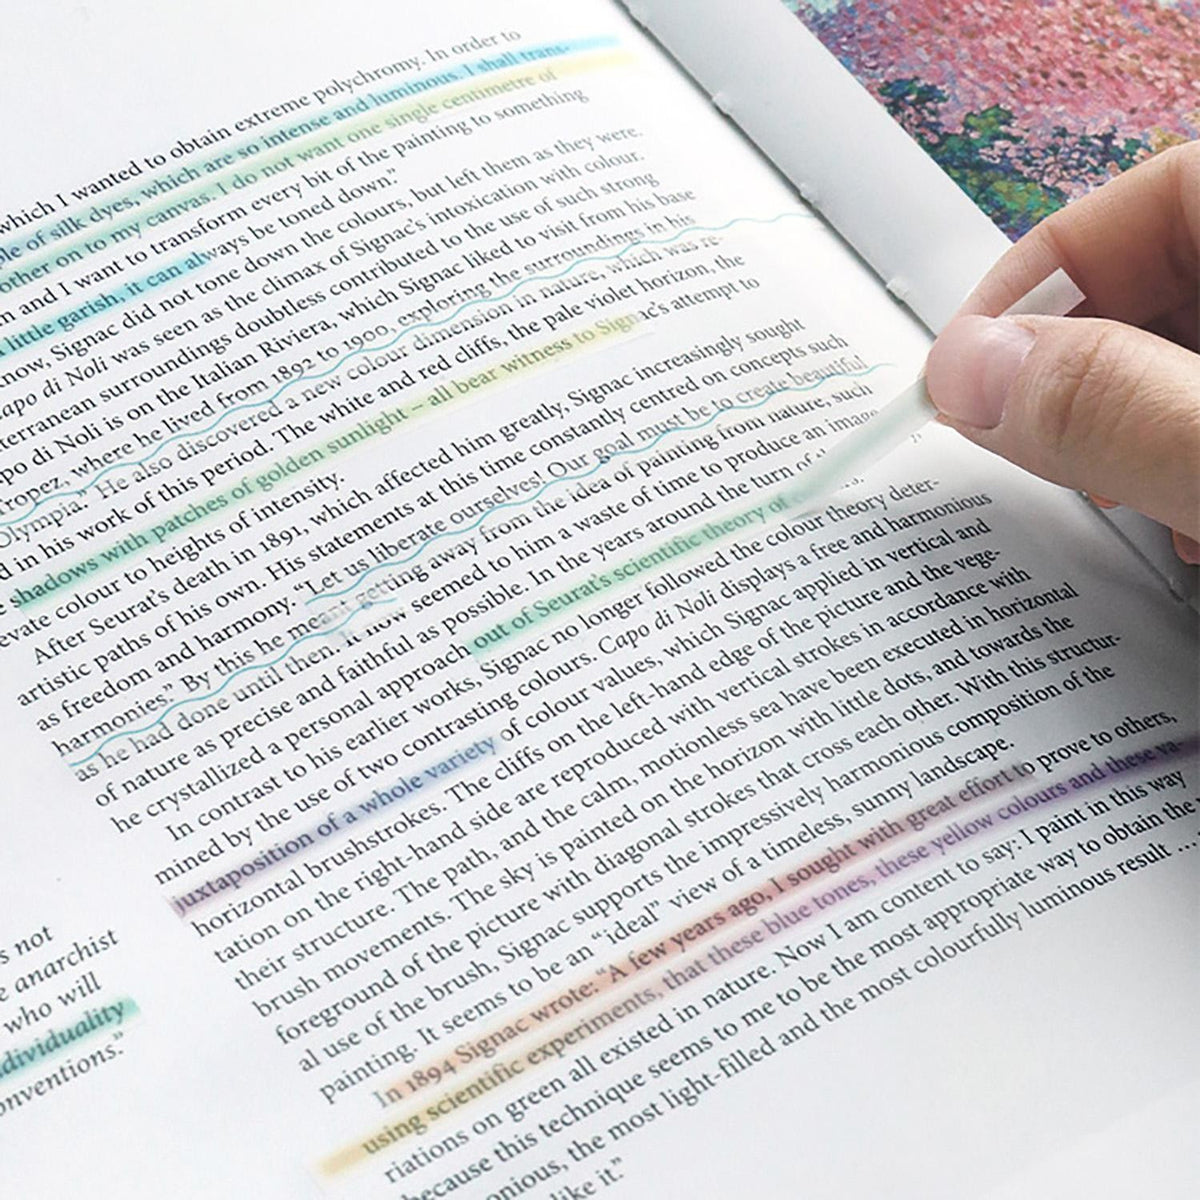 which I wanted to obtain extreme polychromy. In order to
of silk dyes, which are so intense and luminous. I shall trans-
other on to my canvas. I do not want one single centimetre of
and I want to transform every bit of the painting to something
little garish, it can always be toned down."
now, Signac did not tone down the colours, but left them as they were.
Capo di Noli was seen as the climax of Signac's intoxication with colour.
terranean surroundings doubtless contributed to the use of such strong
po di Noli is on the Italian Riviera, which Signac liked to visit from his base
Tropez, where he lived from 1892 to 1900, exploring the surroundings in his
Olympia." He also discovered a new colour dimension in nature, which was re-
d in his work of this period. The white and red cliffs, the pale violet horizon, the
shadows with patches of golden sunlight – all bear witness to Signac's attempt to
evate colour to heights of intensity.
After Seurat's death in 1891, which affected him greatly, Signac increasingly sought
artistic paths of his own. His statements at this time constantly centred on concepts such
as freedom and harmony. "Let us liberate ourselves! Our goal must be to create beautiful
harmonies." By this he meant getting away from the idea of painting from nature, such
as he had done until then. It now seemed to him a waste of time to produce an image
of nature as precise and faithful as possible. In the years around the turn of
he crystallized a personal approach out of Seurat's scientific theory of
In contrast to his earlier works, Signac no longer followed the colour theory deter-
mined by the use of two contrasting colours. Capo di Noli displays a free and harmonious
juxtaposition of a whole variety of colour values, which Signac applied in vertical and
horizontal brushstrokes. The cliffs on the left-hand edge of the picture and the vege-
tation on the right-hand side are reproduced with vertical strokes in accordance with
their structure. The path, and the calm, motionless sea have been executed in horizontal
brush movements. The sky is painted on the horizon with little dots, and towards the
foreground of the picture with diagonal strokes that cross each other. With this structur-
al use of the brush, Signac supports the impressively harmonious composition of the
painting. It seems to be an "ideal" view of a timeless, sunny landscape.
In 1894 Signac wrote: "A few years ago, I sought with great effort to prove to others,
using scientific experiments, that these blue tones, these yellow colours and these va-
riations on green all existed in nature. Now I am content to say: I paint in this way
because this technique seems to me to be the most appropriate way to obtain the
onious, the most light-filled and the most colourfully luminous result …
like it."
s not
e anarchist
who will
dividuality
onventions."